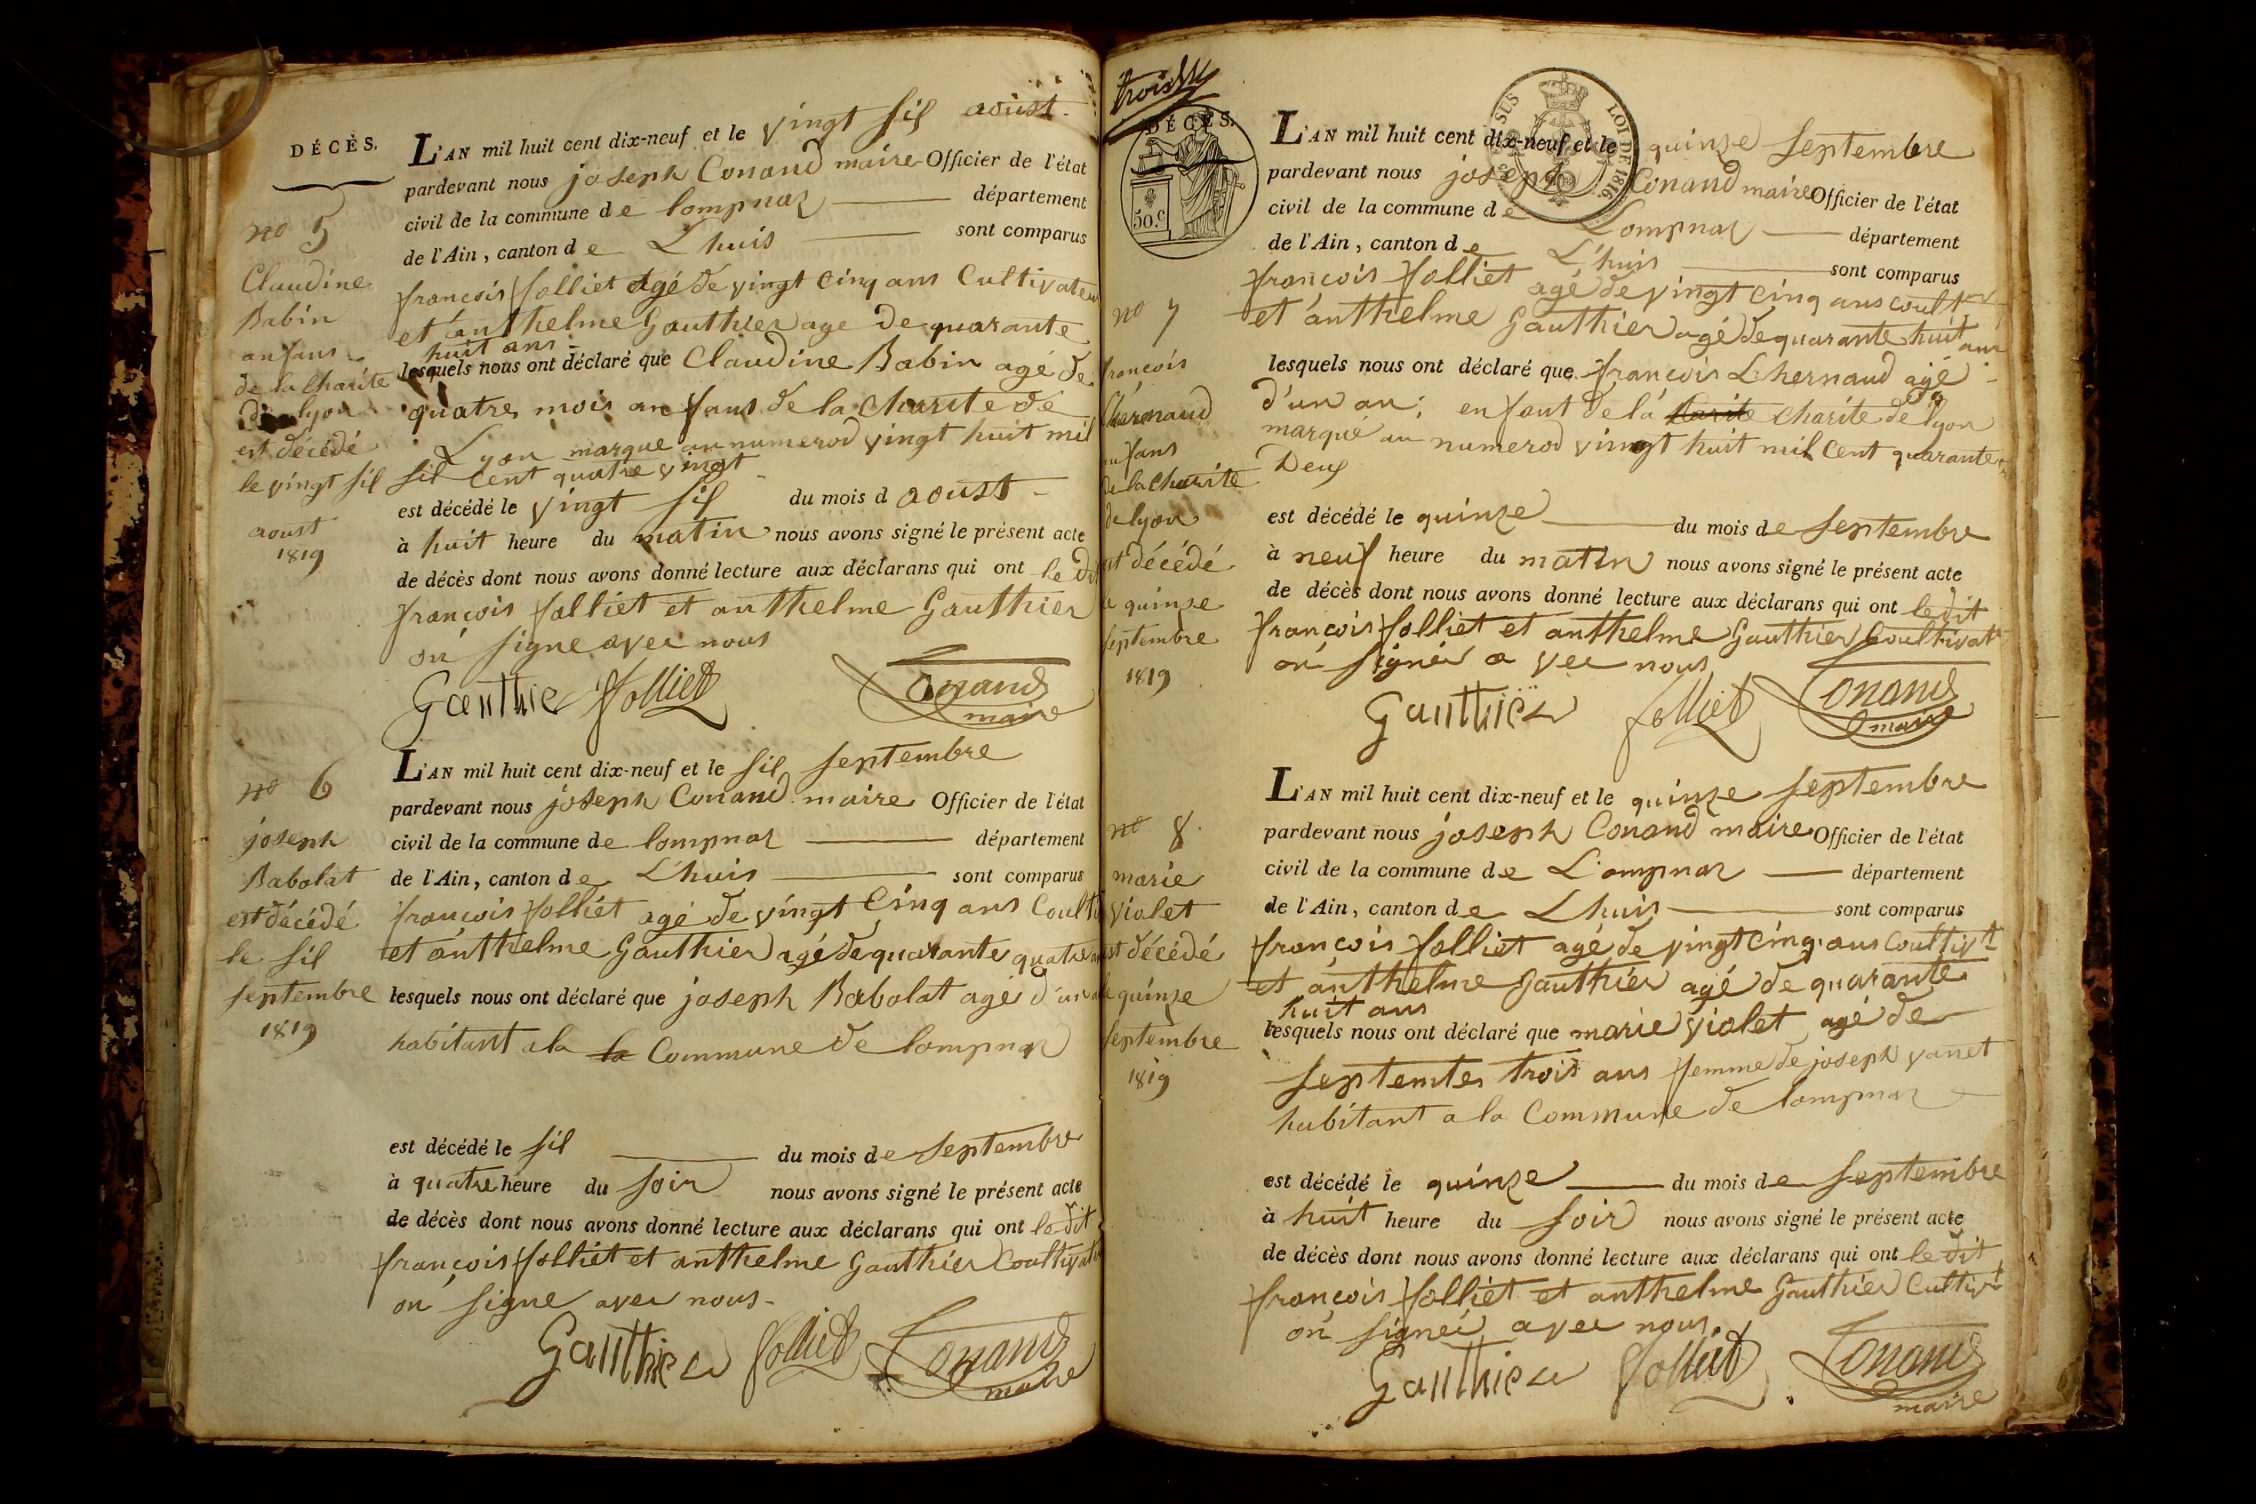 DÉCÈS.
no 5
Claudine
Babin
anfans
de la Charite
De lyon
est décédé
le vingt sil
aoust
1819
L'AN mil huit cent dix-neuf et le vingt sil aoust
pardevant nous joseph Conand maire Officier de l'état
civil de la commune de lompnaz département
de l'Ain, canton de Lhuis sont comparus
françois folliet agé de vingt cinq ans Cultivateur
et anthelme Gauthier age de quarante
huit ans
lesquels nous ont déclaré que Claudine Babin agé de
quatre mois anfans de la Charite de
Lyon marque au numerod vingt huit mil
sil Cent quatre vingt
est décédé le vingt sil du mois d aoust
à huit heure du matin nous avons signé le présent acte
de décès dont nous avons donné lecture aux déclarans qui ont le dit
françois folliet et anthelme Gauthier
on signe avec nous
Gauthier folliet Conand
maire
no 6
joseph
Babolat
est décédé
le sil
septembre
1819
L'AN mil huit cent dix-neuf et le sil septembre
pardevant nous joseph Conand maire Officier de l'état
civil de la commune de lompnaz département
de l'Ain, canton de Lhuis sont comparus
françois folliet agé de vingt Cinq ans Coulti
et anthelme Gauthier agé de quarante quatre
lesquels nous ont déclaré que joseph Babolat age d'un
habitant a la la Commune de lompnaz
est décédé le sil du mois de septembre
à quatre heure du soir nous avons signé le présent acte
de décès dont nous avons donné lecture aux déclarans qui ont le dit
françois folliet et anthelme Gauthier
on signe avec nous
Gauthier folliet Conand
maire
DÉCÈS.
50.c
LOI DE 1816.
no 7
françois
Lhernaud
anfans
de la Charite
de lyon
est décédé
le quinze
septembre
1819
L'AN mil huit cent dix-neuf et le quinze septembre
pardevant nous joseph Conand maire Officier de l'état
civil de la commune de Lompnaz département
de l'Ain, canton de L'huis sont comparus
françois folliet agé de vingt cinq ans
et anthelme Gauthier agé de quarante huit ans
lesquels nous ont déclaré que françois Lhernaud agé
d'un an; enfant de la charite de lyon
marqué au numerod vingt huit mil Cent quarante
Deux
est décédé le quinze du mois de septembre
à neuf heure du matin nous avons signé le présent acte
de décès dont nous avons donné lecture aux déclarans qui ont le dit
françois folliet et anthelme Gauthier Coultivat
on signér a vec nous
Gauthier folliet Conand
maire
no 8
marie
violet
est décédé
le quinze
septembre
1819
L'AN mil huit cent dix-neuf et le quinze septembre
pardevant nous joseph Conand maire Officier de l'état
civil de la commune de Lompnaz département
de l'Ain, canton de Lhuis sont comparus
françois folliet agé de vingt cinq ans
et anthelme Gauthier agé de quarante
huit ans
lesquels nous ont déclaré que marie violet agé de
septente trois ans femme de joseph vanet
habitant a la Commune de lompnaz
est décédé le quinze du mois de septembre
à huit heure du soir nous avons signé le présent acte
de décès dont nous avons donné lecture aux déclarans qui ont le dit
françois folliet et anthelme Gauthier
on signér avec nous
Gauthier folliet Conand
maire